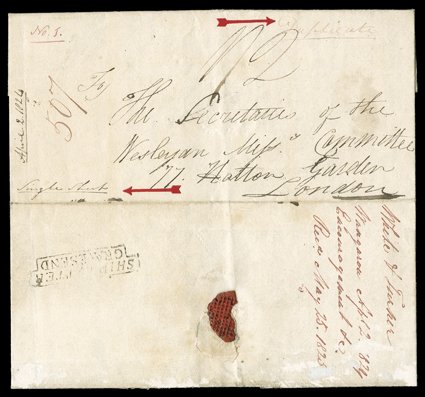 No. 5.
Duplicate
April 2. 1824
507
1/2
To
The Secretaries of the
Wesleyan Miss.y Committee
77. Hatton Garden
London
Single Sheet
SHIP LETTER
GRAVESEND
White & Turner
Wangaroa Apl 2. 1824
Encouragement &c.
Recd May 25. 1825